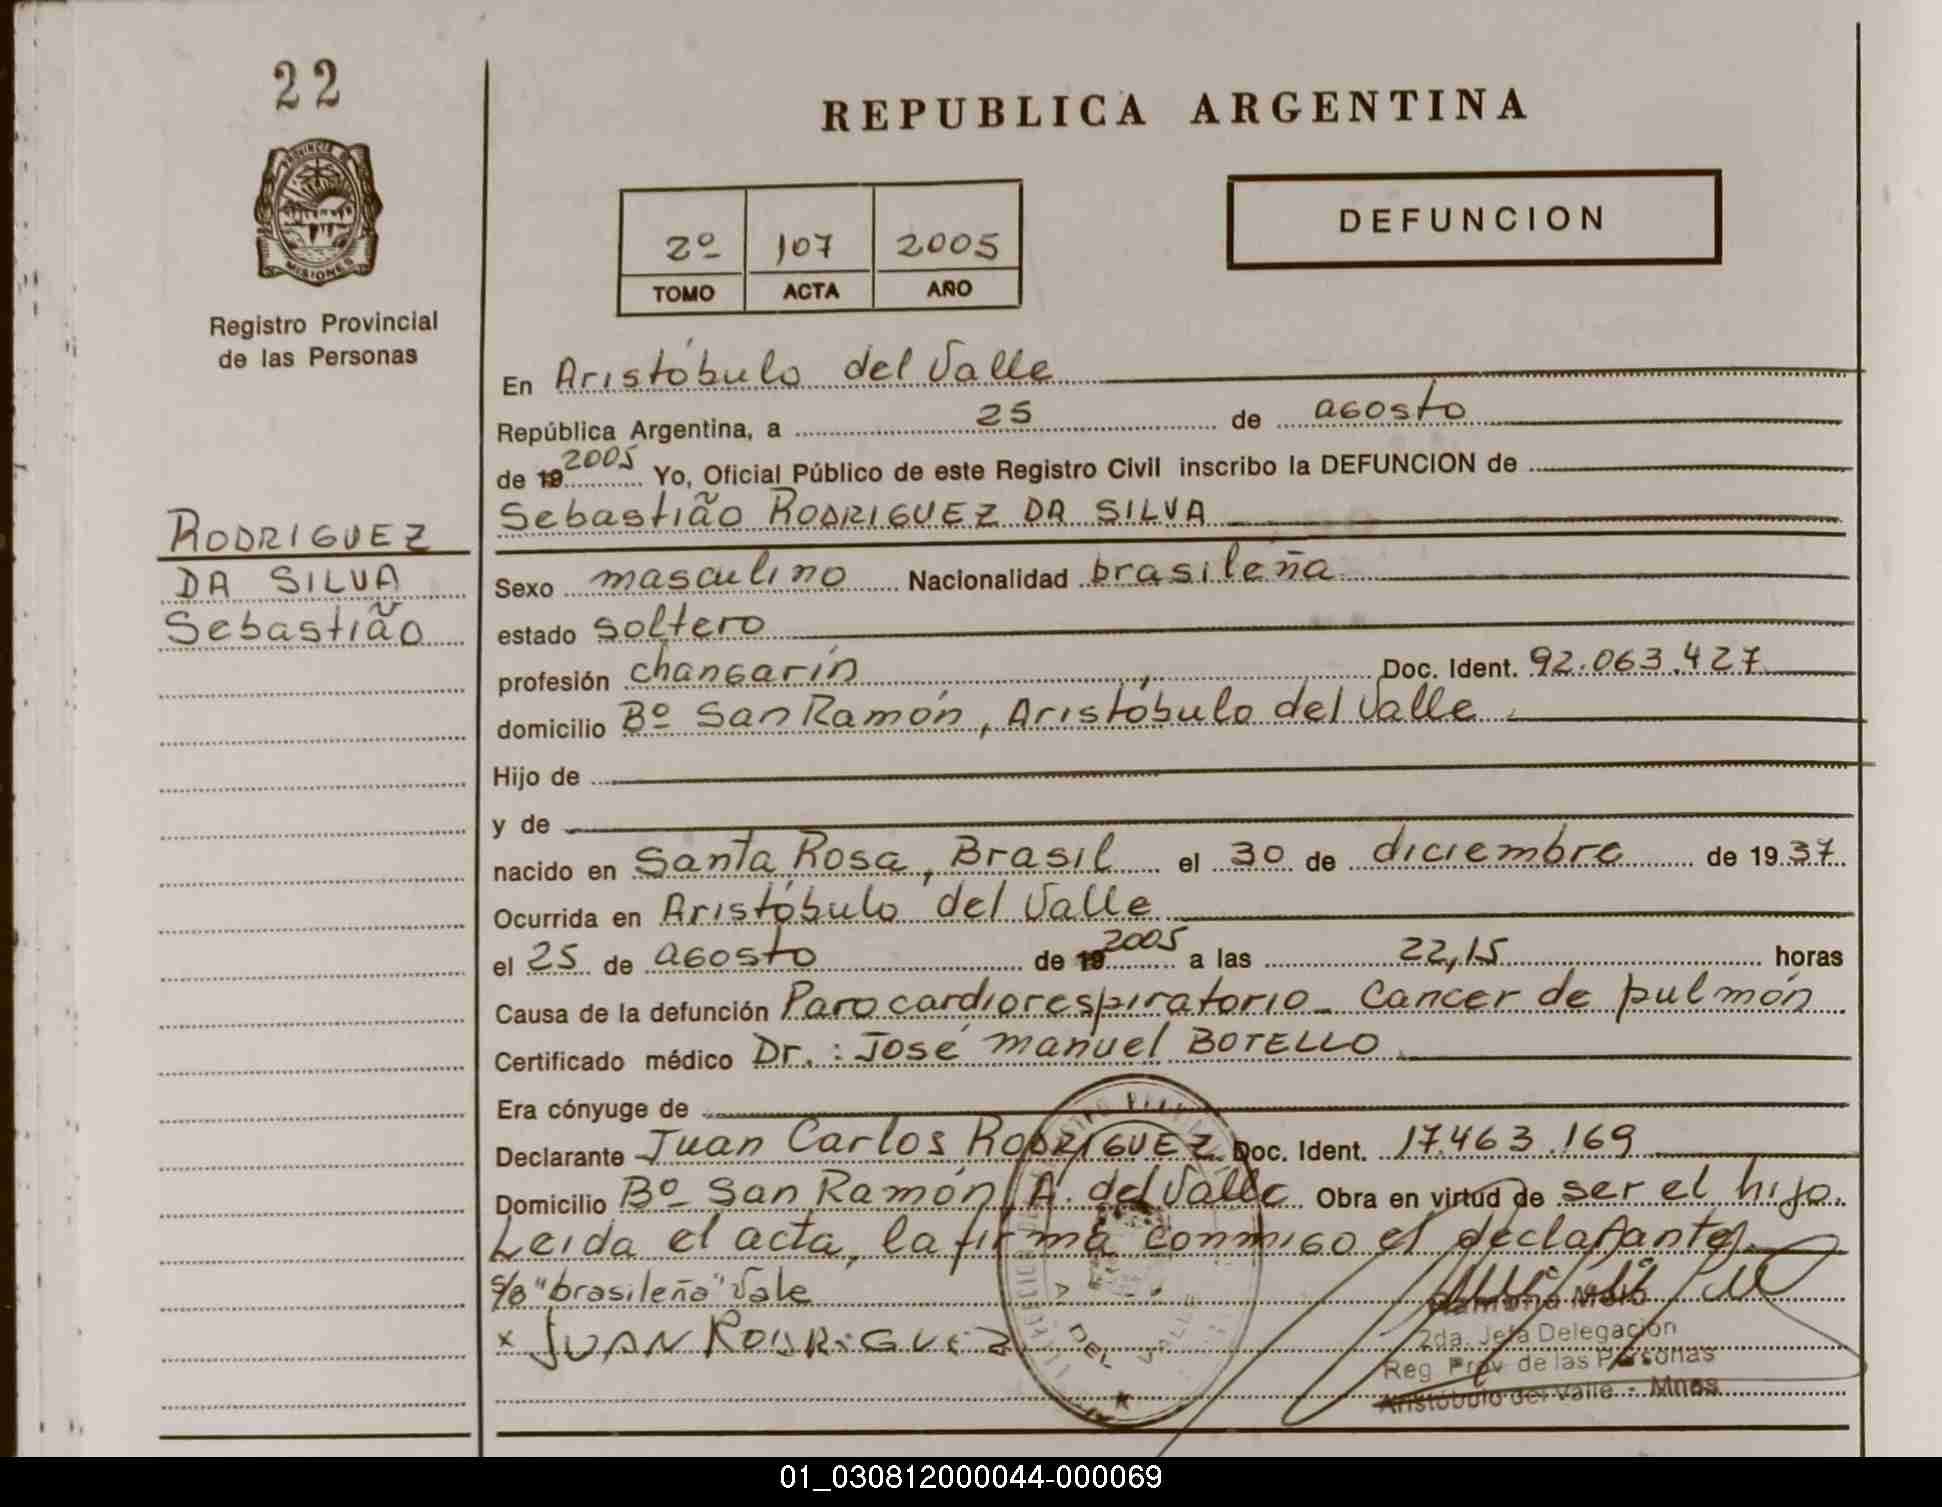 22
PROVINCIA DE
MISIONES
Registro Provincial
de las Personas
RODRIGUEZ
DA SILVA
Sebastião
REPUBLICA ARGENTINA
2º 107 2005
TOMO ACTA AÑO
DEFUNCION
En Aristóbulo del Valle
República Argentina, a 25 de agosto
de 19 2005 Yo, Oficial Público de este Registro Civil inscribo la DEFUNCION de
Sebastião RODRIGUEZ DA SILVA
Sexo masculino Nacionalidad brasileña
estado soltero
profesión changarín Doc. Ident. 92.063.427
domicilio Bº San Ramón, Aristóbulo del Valle
Hijo de
y de
nacido en Santa Rosa, Brasil el 30 de diciembre de 1937
Ocurrida en Aristóbulo del Valle
el 25 de agosto de 19 2005 a las 22,15 horas
Causa de la defunción Paro cardiorespiratorio - Cancer de pulmón
Certificado médico Dr.: José Manuel BOTELLO
Era cónyuge de
Declarante Juan Carlos RODRIGUEZ Doc. Ident. 17.463.169
Domicilio Bº San Ramón, A. del Valle Obra en virtud de ser el hijo.
Leida el acta, la firma conmigo el declarante.
s/b "brasileña" Vale
x JUAN RODRIGUEZ
DEL VALLE
2da. Jefa Delegación
Reg. Prov. de las Personas
Aristóbulo del Valle - Mnes
01_030812000044-000069